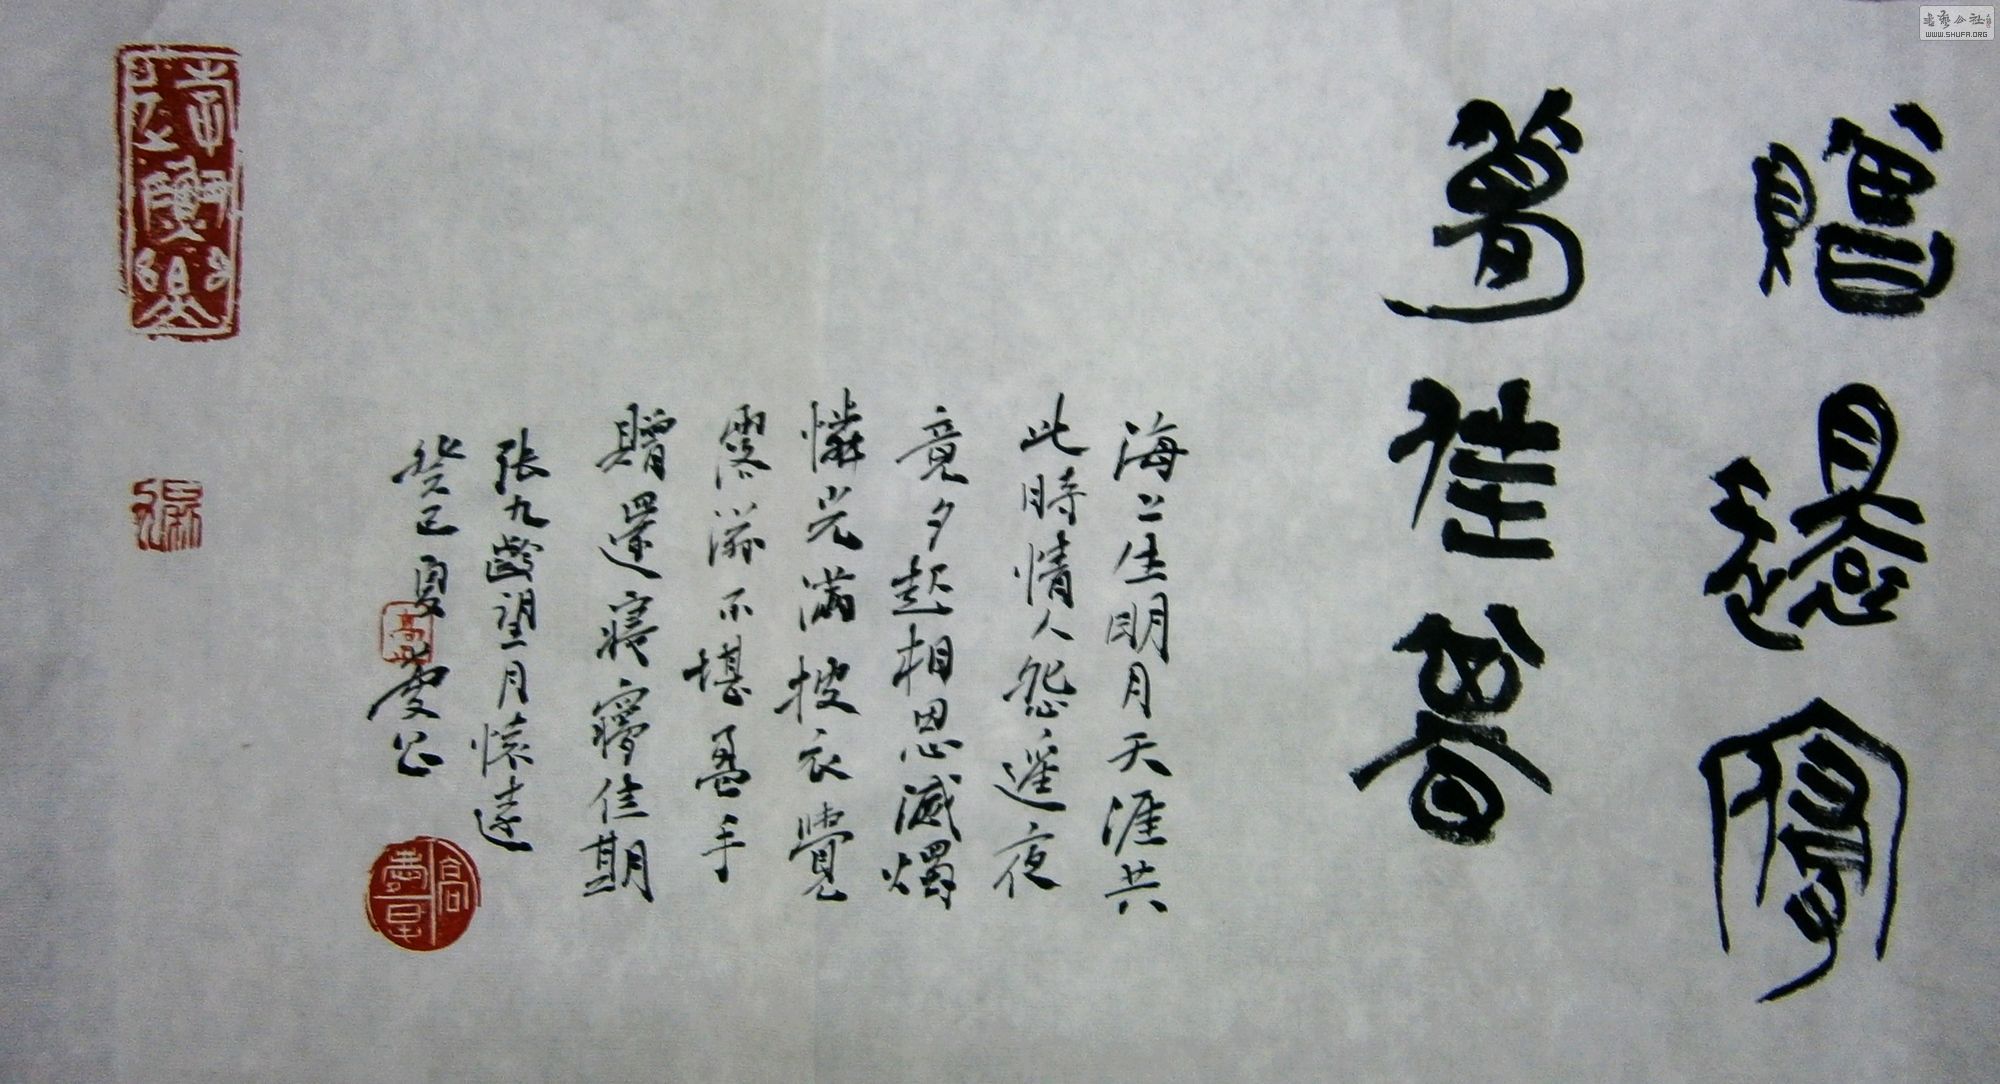 贈還寢
夢佳期
海上生明月天涯共
此時情人怨遙夜
竟夕起相思滅燭
憐光滿披衣覺
露滋不堪盈手
贈還寢寢夢佳期
張九齡望月懷遠
癸巳夏
书艺公社
WWW.SHUFA.ORG